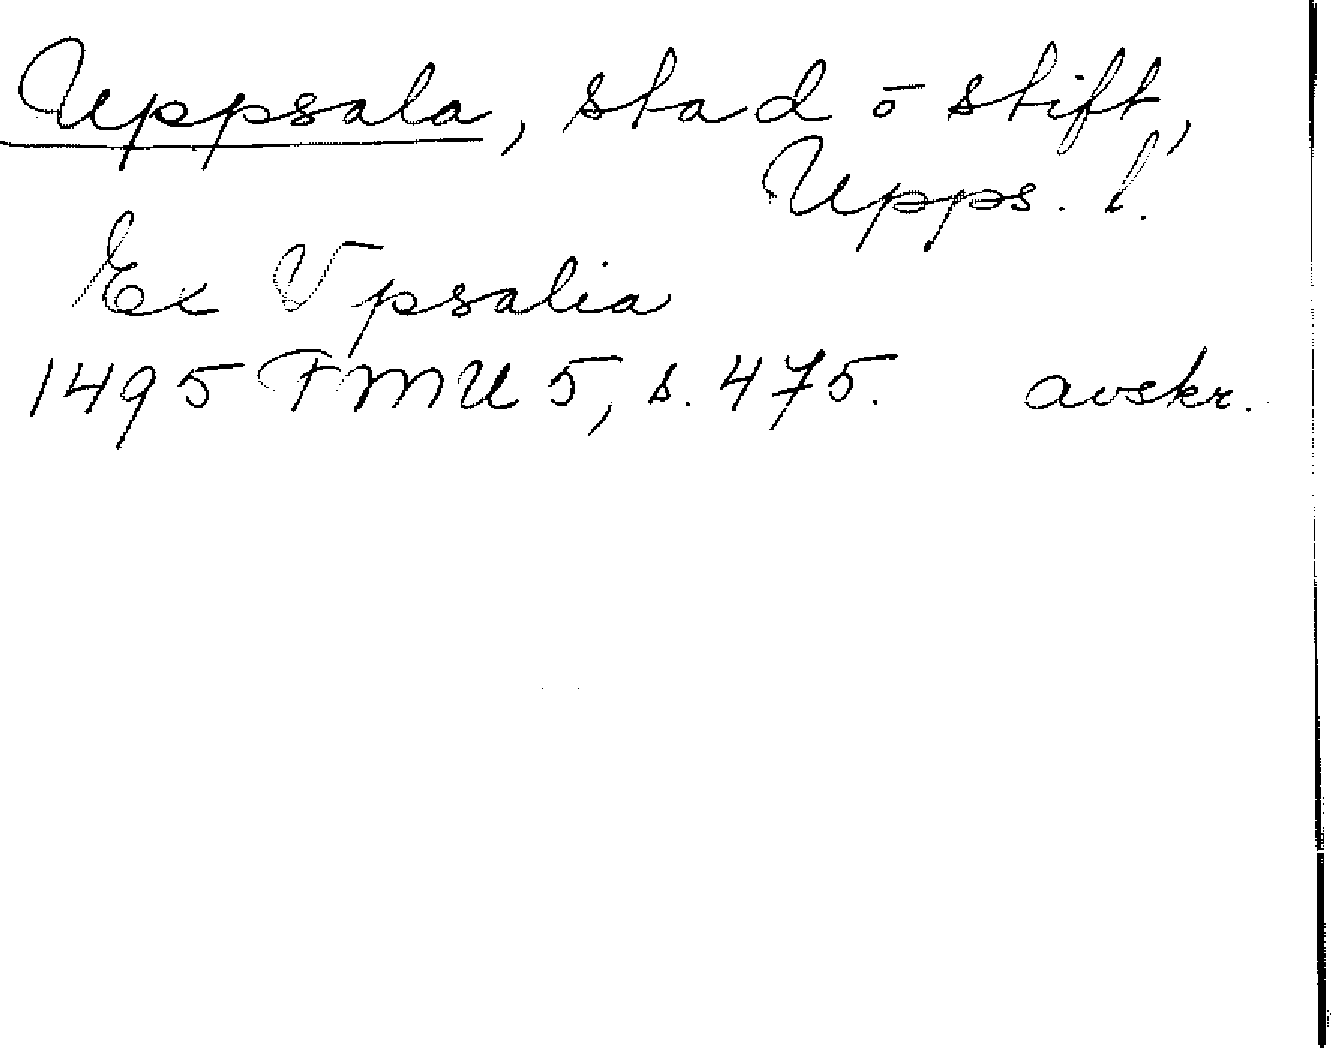 Uppsala, stad o stift,
Upps. l.
Ex Vpsalia
1495 FMU 5, s. 475. avskr.